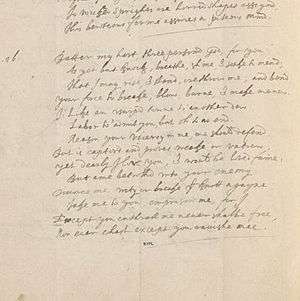 To wicked sprights are horrid shapes assignd,
This beauteous forme assures a piteous mind.
16 Batter my hart, three person'd God, for you
As yet but knock, breathe, shine & seeke to mend,
That I may rise & stand, orethrow me, and bend
Your force to breake, blow, burne & make me new.
I like an usurp'd towne to another dew
Labor to admit you, but oh to no end
Reason your viceroy in me, me should defend
But is captiv'd and proves weake or untrew.
yet dearly I love you, & would be lov'd faine,
But ame betroth'd unto your enemy
Divorce me, untye or breake that knott agayne
Take me to you, emprison me, for I
Except you enthrall me never shalbe free,
Nor ever chast except you ravishe mee.